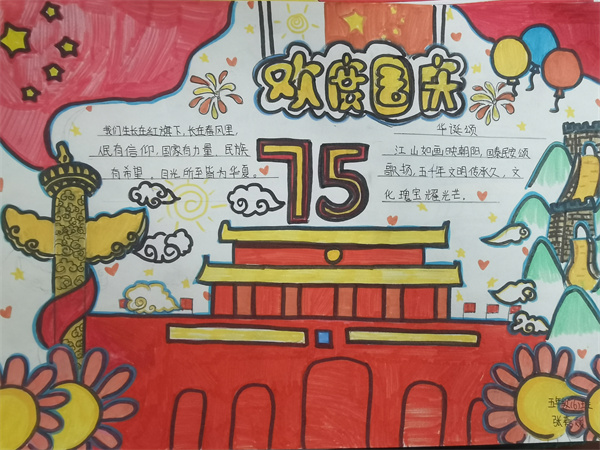 欢度国庆
75
我们生长在红旗下，长在春风里，
人民有信仰，国家有力量，民族
有希望。目光所至皆为华夏。
华诞颂
江山如画映朝阳，国泰民安颂
歌扬，五千年文明传承久，文
化瑰宝耀光芒。
张